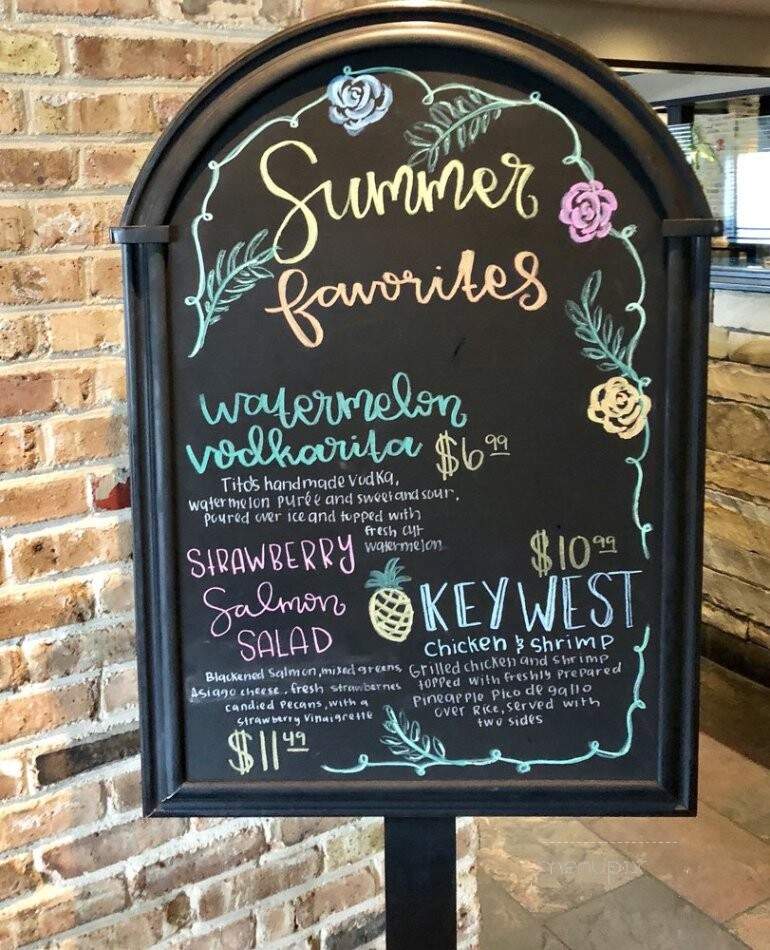 Summer
favorites
watermelon
vodkarita $6.99
Tito's handmade vodka,
watermelon purée and sweet and sour,
poured over ice and topped with
fresh cut
watermelon
STRAWBERRY
Salmon
SALAD
Blackened Salmon, mixed greens,
Asiago cheese, fresh strawberries
candied pecans, with a
strawberry vinaigrette
$11.49
$10.99
KEY WEST
chicken & shrimp
Grilled chicken and shrimp
topped with freshly prepared
pineapple pico de gallo
over rice, served with
two sides